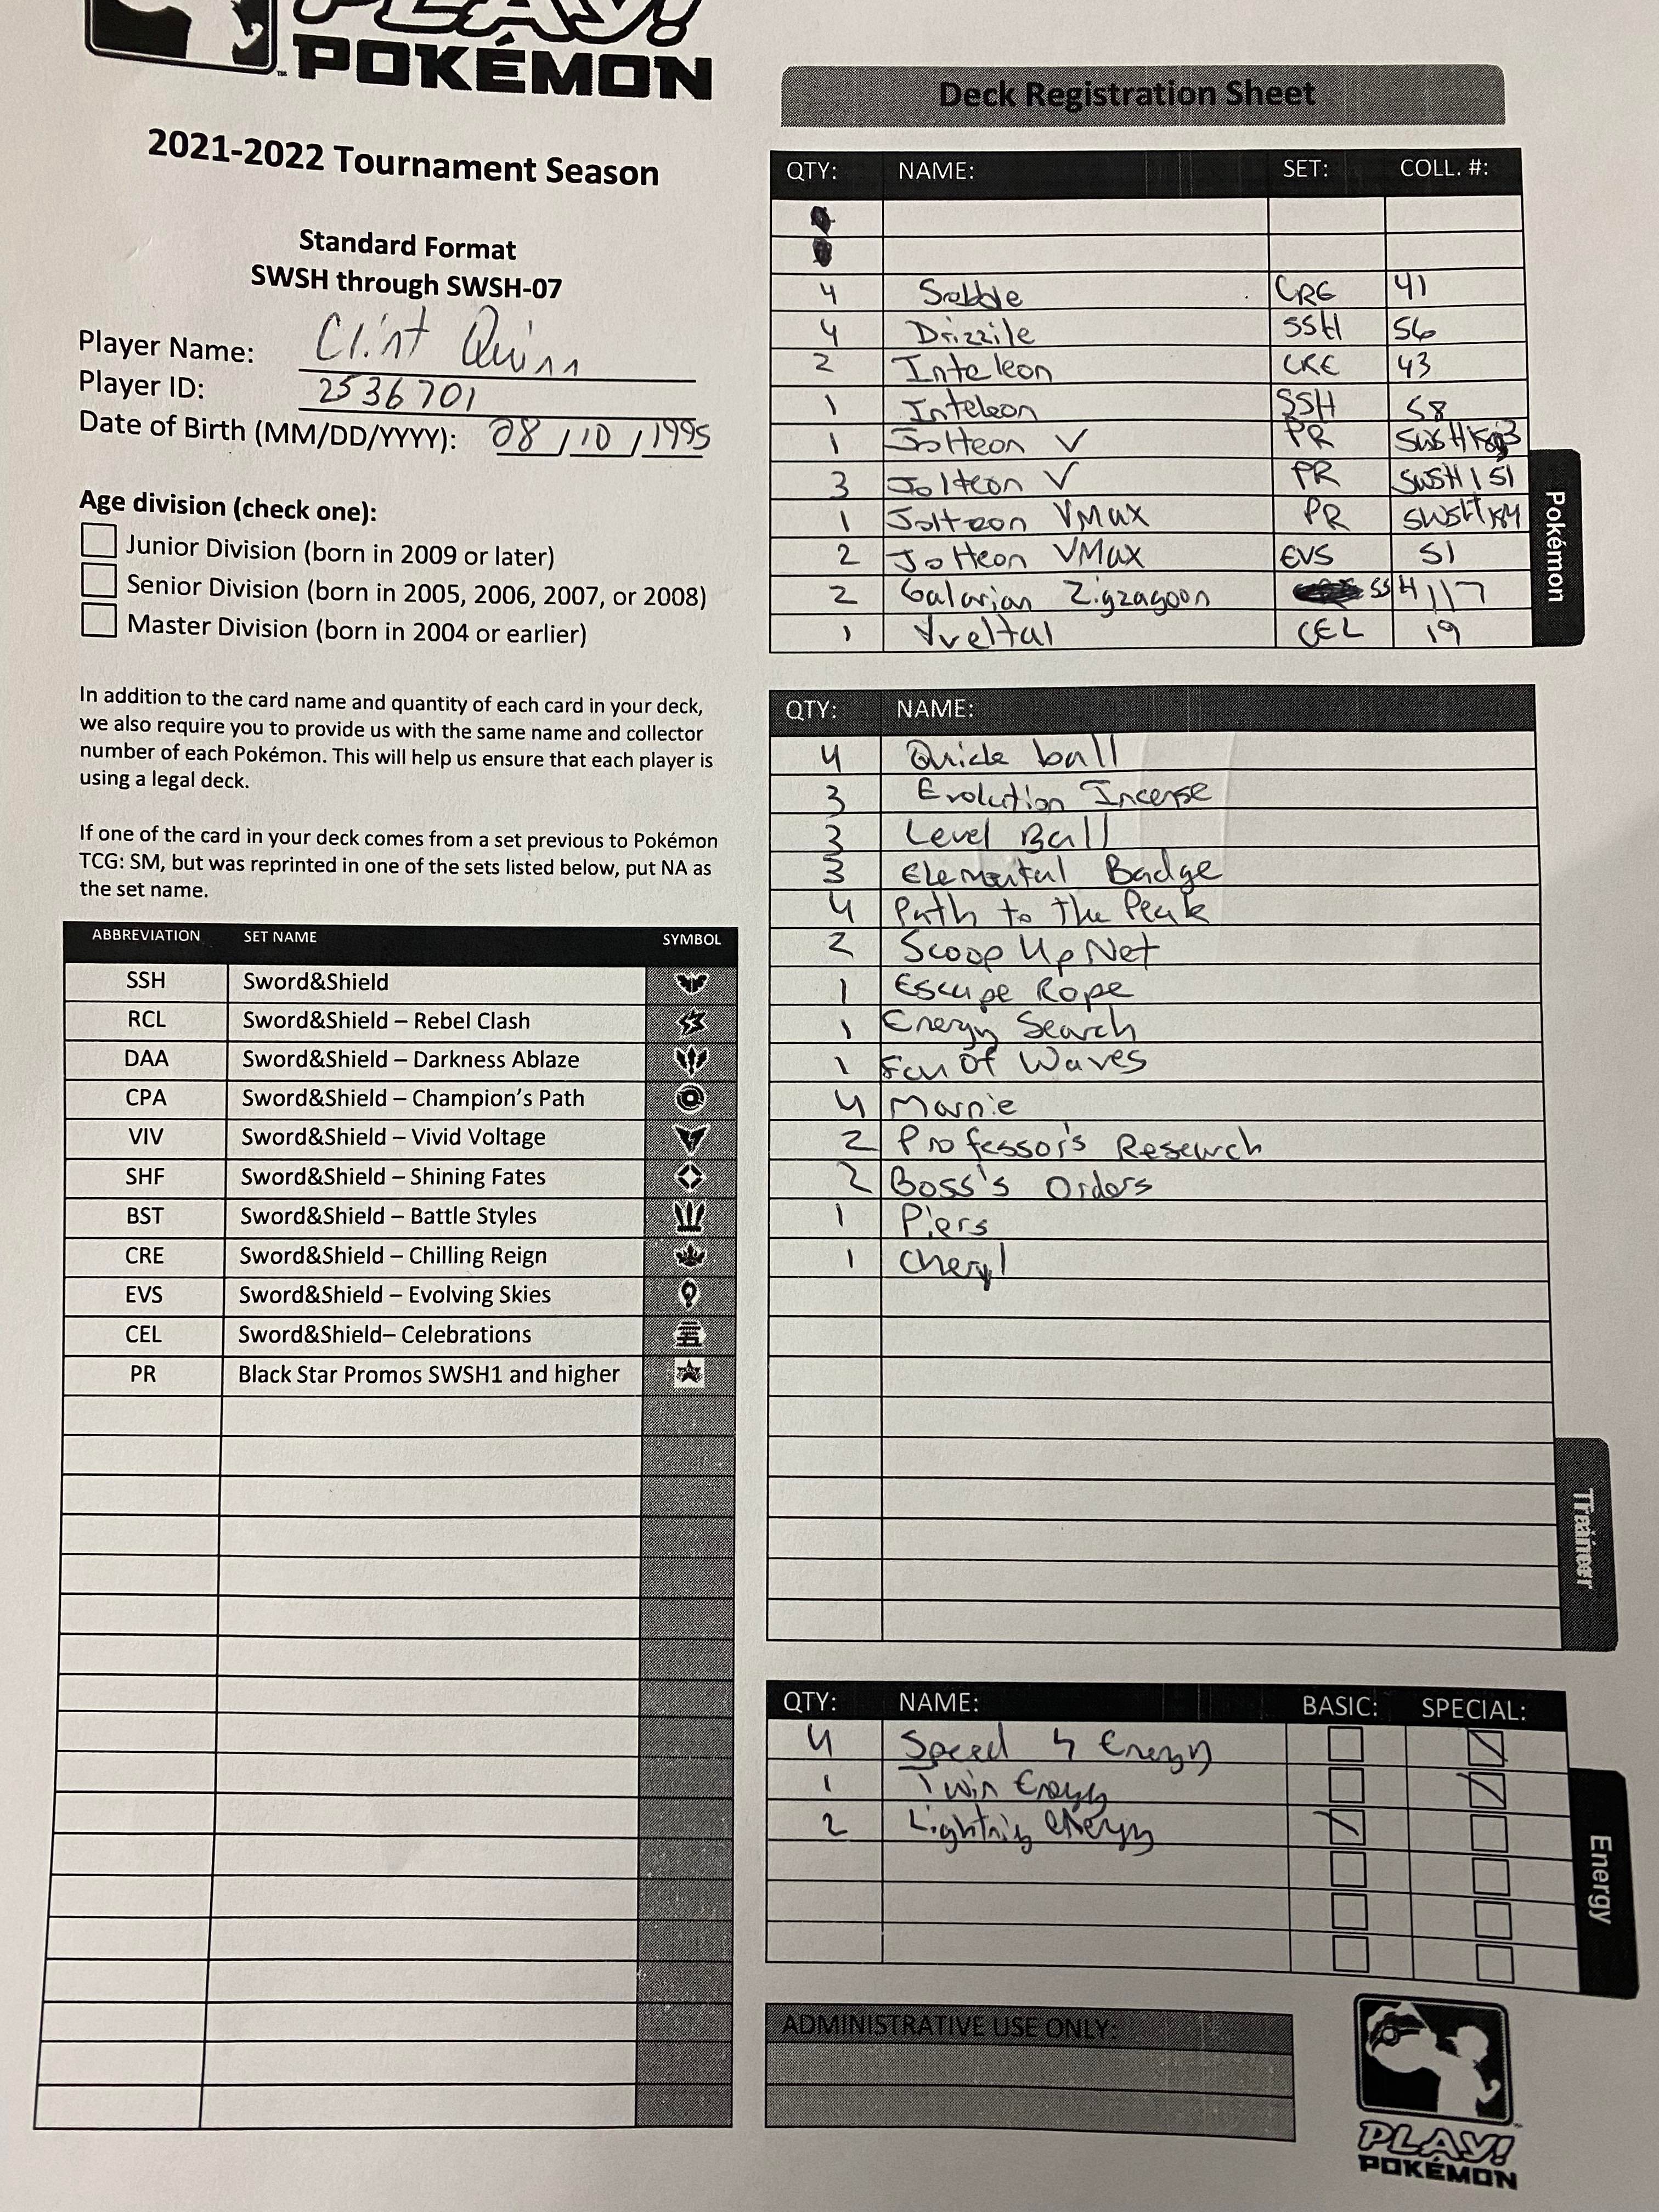 PLAY!
POKÉMON
2021-2022 Tournament Season
Standard Format
SWSH through SWSH-07
Player Name: Clint Quinn
Player ID: 2536701
Date of Birth (MM/DD/YYYY): 08/10/1995
Age division (check one):
Junior Division (born in 2009 or later)
Senior Division (born in 2005, 2006, 2007, or 2008)
Master Division (born in 2004 or earlier)
In addition to the card name and quantity of each card in your deck,
we also require you to provide us with the same name and collector
number of each Pokémon. This will help us ensure that each player is
using a legal deck.
If one of the card in your deck comes from a set previous to Pokémon
TCG: SM, but was reprinted in one of the sets listed below, put NA as
the set name.
ABBREVIATION SET NAME SYMBOL
SSH Sword&Shield
RCL Sword&Shield – Rebel Clash
DAA Sword&Shield – Darkness Ablaze
CPA Sword&Shield – Champion's Path
VIV Sword&Shield – Vivid Voltage
SHF Sword&Shield – Shining Fates
BST Sword&Shield – Battle Styles
CRE Sword&Shield – Chilling Reign
EVS Sword&Shield – Evolving Skies
CEL Sword&Shield– Celebrations
PR Black Star Promos SWSH1 and higher
Deck Registration Sheet
QTY: NAME: SET: COLL. #:
4 Sobble CRE 41
4 Drizzile SSH 56
2 Inteleon CRE 43
1 Inteleon SSH 58
1 Jolteon V PR
3 Jolteon V PR SWSH151
1 Jolteon VMax PR SWSH184
2 Jolteon VMax EVS 51
2 Galarian Zigzagoon SSH 117
1 Yveltal CEL 19
Pokémon
QTY: NAME:
4 Quick ball
3 Evolution Incense
3 Level Ball
3 Elemental Badge
4 Path to the Peak
2 Scoop Up Net
1 Escape Rope
1 Energy Search
1 Fan Of Waves
4 Marnie
2 Professor's Research
2 Boss's Orders
1 Piers
1 Cheryl
Trainer
QTY: NAME: BASIC: SPECIAL:
4 Speed Energy
1 Twin Energy
2 Lightning energy
Energy
ADMINISTRATIVE USE ONLY:
PLAY!
POKÉMON